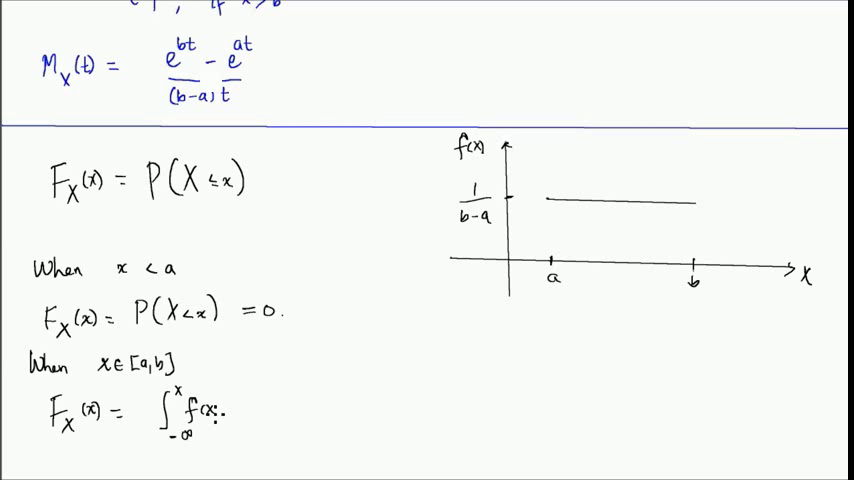 1, if x > b
M_X(t) = (e^{bt} - e^{at}) / ((b-a)t)
F_X(x) = P(X ≤ x)
When x < a
F_X(x) = P(X < x) = 0.
When x ∈ [a, b]
F_X(x) = ∫_{-∞}^{x} f(x
f(x)
1/(b-a)
a
b
X